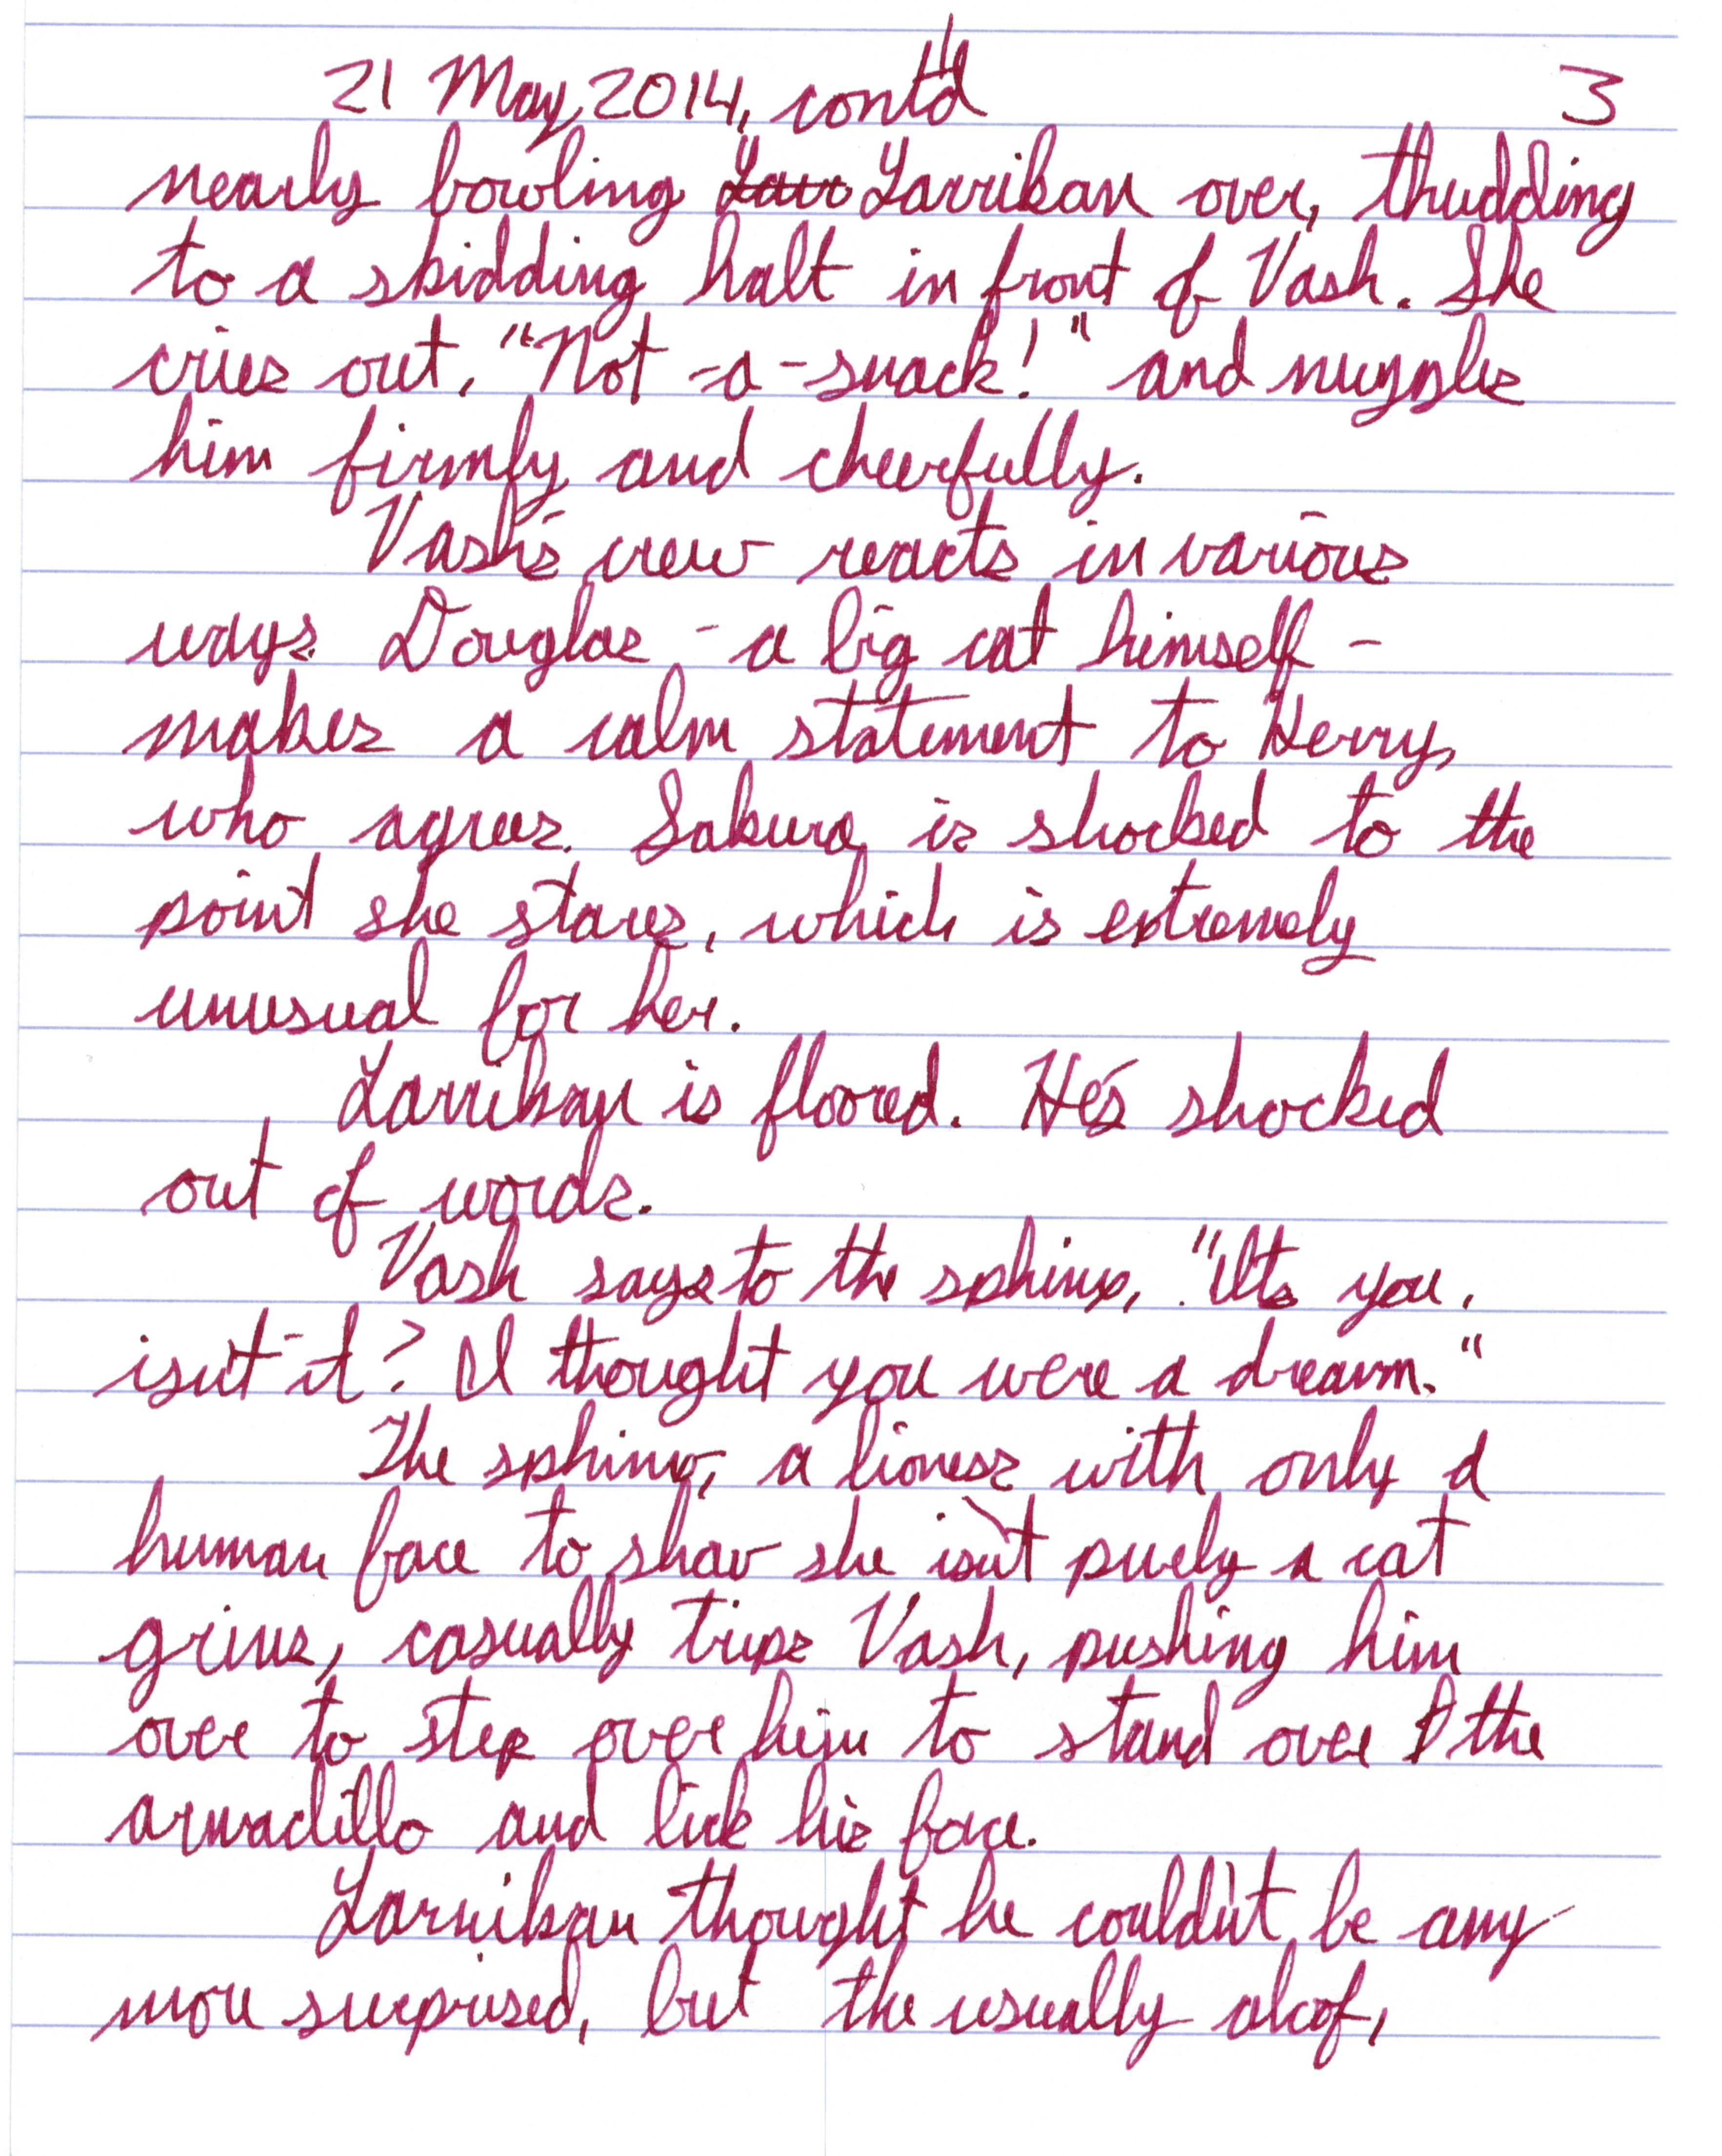 21 May 2014, cont'd 3
nearly bowling Larr Larrikan over, thudding
to a skidding halt in front of Vash. She
cries out, "Not-a-snack!" and nuzzles
him firmly and cheerfully.
Vash's crew reacts in various
ways. Douglas - a big cat himself -
makes a calm statement to Kerry,
who agrees. Sakura is shocked to the
point she stares, which is extremely
unusual for her.
Larrikan is floored. He's shocked
out of words.
Vash says to the sphinx, "It's you,
isn't it? I thought you were a dream."
The sphinx, a lioness with only a
human face to show she isn't purely a cat
grins, casually trips Vash, pushing him
over to step over him to stand over the
armadillo and lick his face.
Larrikan thought he couldn't be any
more surprised, but the usually aloof,